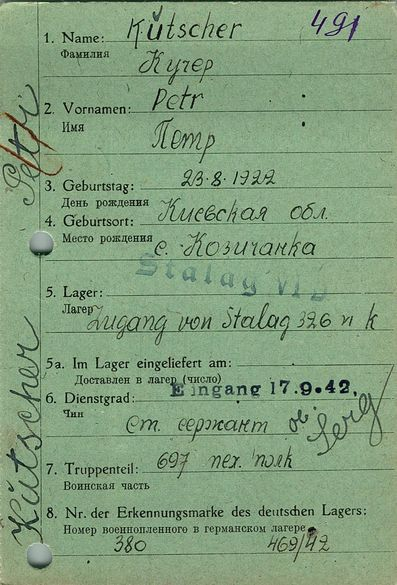 491
1. Name: Kütscher
Фамилия Кучер
2. Vornamen: Petr
Имя Петр
3. Geburtstag: 23.8.1922
День рождения
4. Geburtsort: Киевская обл.
Место рождения с. Козичанка
Stalag VI D
5. Lager:
Лагерь Zugang von Stalag 326 VI K
5a. Im Lager eingeliefert am:
Доставлен в лагерь (число)
6. Dienstgrad: Eingang 17.9.42.
Чин Ст. сержант
7. Truppenteil: 697 пех. полк
Воинская часть
8. Nr. der Erkennungsmarke des deutschen Lagers:
Номер военнопленного в германском лагере
380 469/42
Kütscher Petri